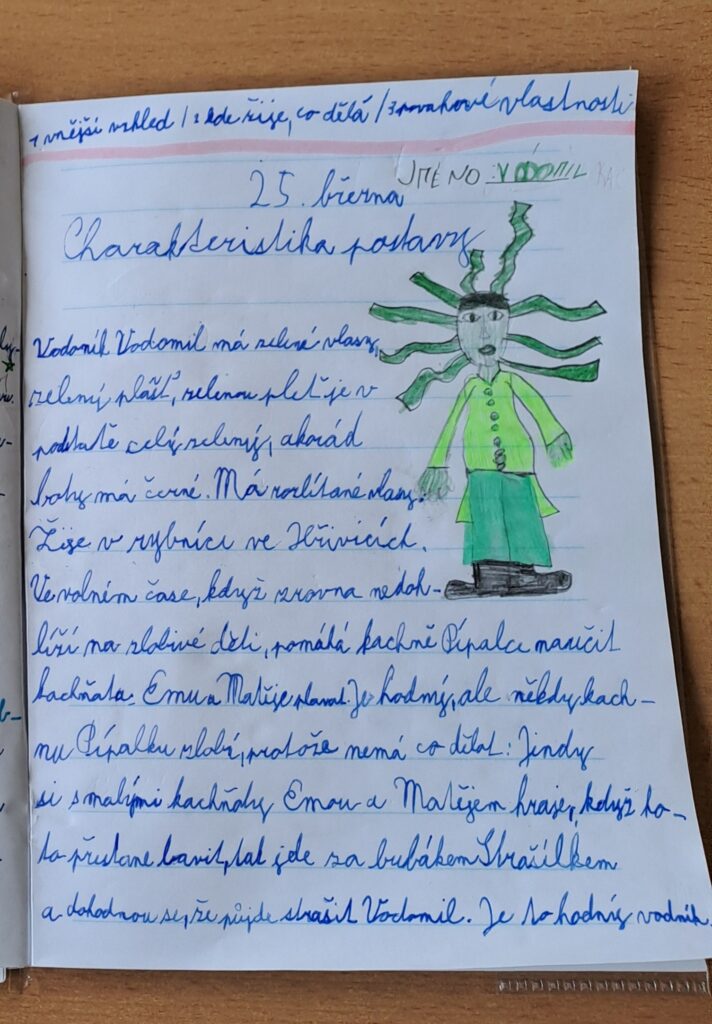 1 vnější vzhled / 2 kde žije, co dělá / 3 povahové vlastnosti
JMÉNO: VODOMIL
25. března
Charakteristika postavy
Vodoník Vodomil má zelené vlasy,
zelený plášť, zelenou pleť je v
podstatě celý zelený, akorád
boty má černé. Má rozlítané vlasy.
Žije v rybníce ve Hřivicích.
Ve volném čase, když zrovna nedoh-
líží na zlobivé děti, pomáhá kachně Pípalce naučit
kachňata. Emu a Matěje plavat. Je hodný, ale někdy kach-
nu Pípalku zlobí, protože nemá co dělat: Jindy
si s malými kachňaty Emou a Matějem hraje, když ho
to přestane bavit, tak jde za bubákem Strašílkem
a dohodnou se, že půjde strašit Vodomil. Je to hodný vodník.